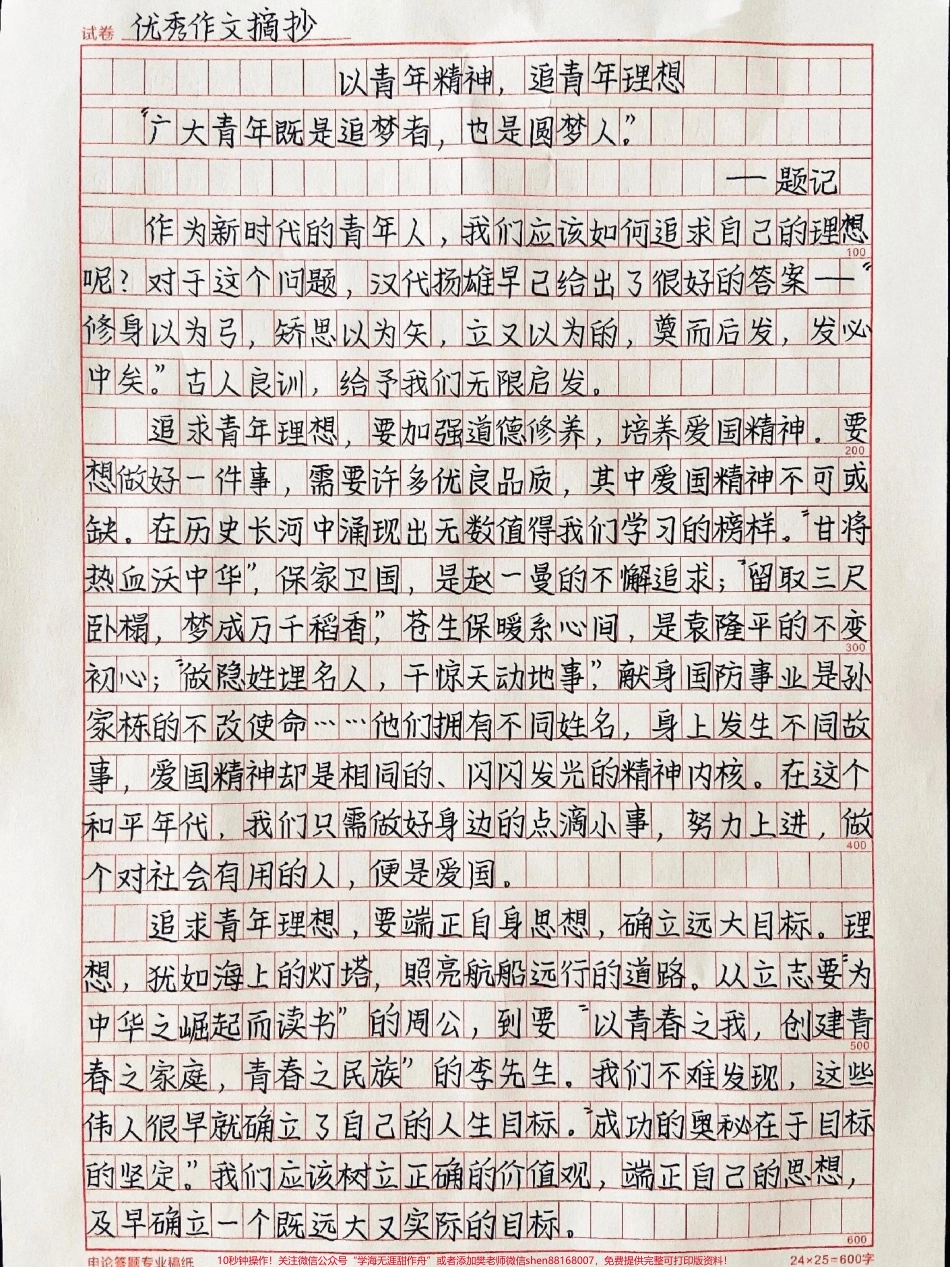 试卷 优秀作文摘抄
以青年精神，追青年理想
“广大青年既是追梦者，也是圆梦人。”
——题记
作为新时代的青年人，我们应该如何追求自己的理想
100
呢？对于这个问题，汉代扬雄早已给出了很好的答案——“
修身以为弓，矫思以为矢，立又以为的，奠而后发，发必
中矣。”古人良训，给予我们无限启发。
追求青年理想，要加强道德修养，培养爱国精神。要
200
想做好一件事，需要许多优良品质，其中爱国精神不可或
缺。在历史长河中涌现出无数值得我们学习的榜样。“甘将
热血沃中华”，保家卫国，是赵一曼的不懈追求；“留取三尺
卧榻，梦成万千稻香”，苍生保暖系心间，是袁隆平的不变
300
初心；“做隐姓埋名人，干惊天动地事”，献身国防事业是孙
家栋的不改使命……他们拥有不同姓名，身上发生不同故
事，爱国精神却是相同的、闪闪发光的精神内核。在这个
和平年代，我们只需做好身边的点滴小事，努力上进，做
400
个对社会有用的人，便是爱国。
追求青年理想，要端正自身思想，确立远大目标。理
想，犹如海上的灯塔，照亮航船远行的道路。从立志要“为
中华之崛起而读书”的周公，到要“以青春之我，创建青
500
春之家庭，青春之民族”的李先生。我们不难发现，这些
伟人很早就确立了自己的人生目标。“成功的奥秘在于目标
的坚定。”我们应该树立正确的价值观，端正自己的思想，
及早确立一个既远大又实际的目标。
600
申论答题专业稿纸 10秒钟操作！关注微信公众号“学海无涯甜作舟”或者添加樊老师微信shen88168007，免费提供完整可打印版资料！ 24×25=600字